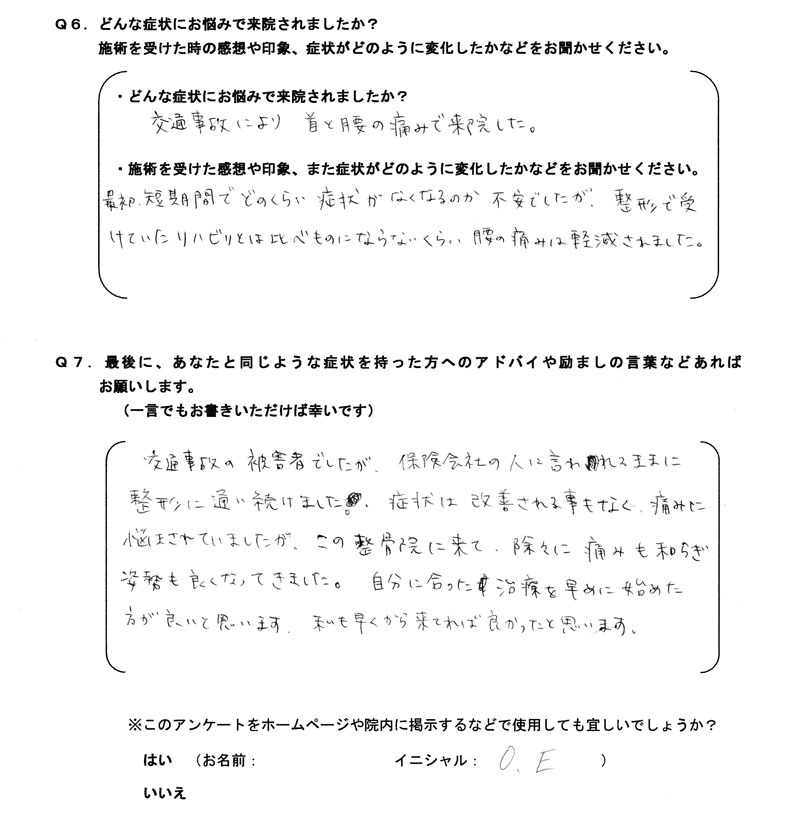 Q6．どんな症状にお悩みで来院されましたか？
施術を受けた時の感想や印象、症状がどのように変化したかなどをお聞かせください。
・どんな症状にお悩みで来院されましたか？
交通事故により 首と腰の痛みで来院した。
・施術を受けた感想や印象、また症状がどのように変化したかなどをお聞かせください。
最初、短期間でどのくらい 症状がなくなるのか 不安でしたが、整形で受
けていたリハビリとは比べものにならないくらい 腰の痛みは軽減されました。
Q7．最後に、あなたと同じような症状を持った方へのアドバイや励ましの言葉などあれば
お願いします。
（一言でもお書きいただけば幸いです）
交通事故の被害者でしたが、保険会社の人に言われるままに
整形に通い続けました。症状は改善される事もなく、痛みに
悩まされていましたが、この整骨院に来て、除々に痛みも和らぎ
姿勢も良くなってきました。自分に合った治療を早めに始めた
方が良いと思います。私も早くから来てれば良かったと思います。
※このアンケートをホームページや院内に掲示するなどで使用しても宜しいでしょうか？
はい （お名前： イニシャル： O.E ）
いいえ